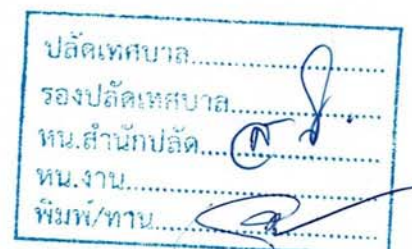 ปลัดเทศบาล....................
รองปลัดเทศบาล....................
หน.สำนักปลัด....................
หน.งาน....................
พิมพ์/ทาน....................